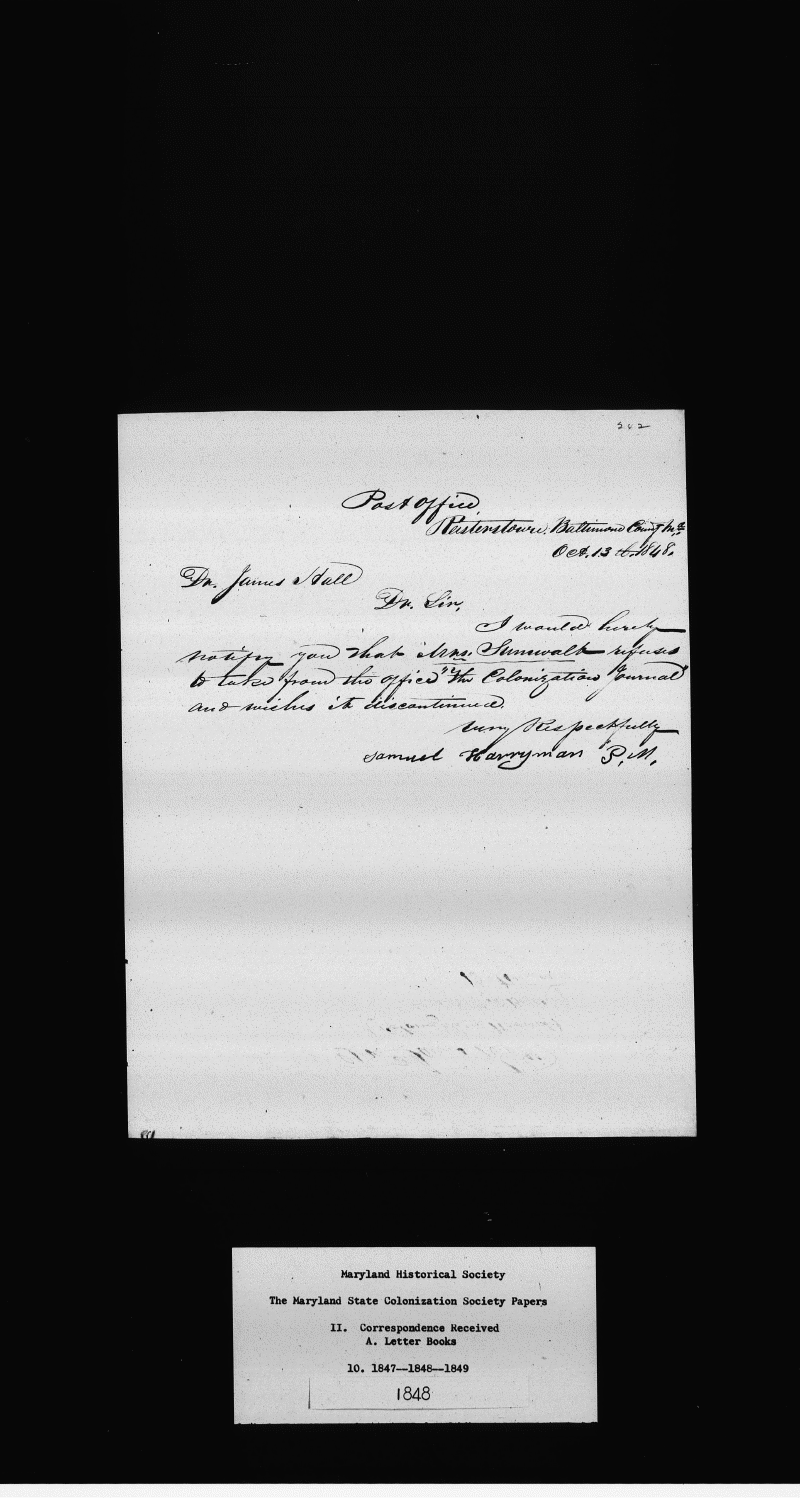 242
Post Office,
Reisterstown, Baltimore County Md
Oct. 13th 1848.
Dr. James Hall
Dr. Sir,
I would hereby
notify you that Mrs. Sumwalt refuses
to take from the office "the Colonization Journal"
and wishes it discontinued.
Very Respectfully
Samuel Harryman P. M.
Maryland Historical Society
The Maryland State Colonization Society Papers
II. Correspondence Received
A. Letter Books
10. 1847--1848--1849
1848